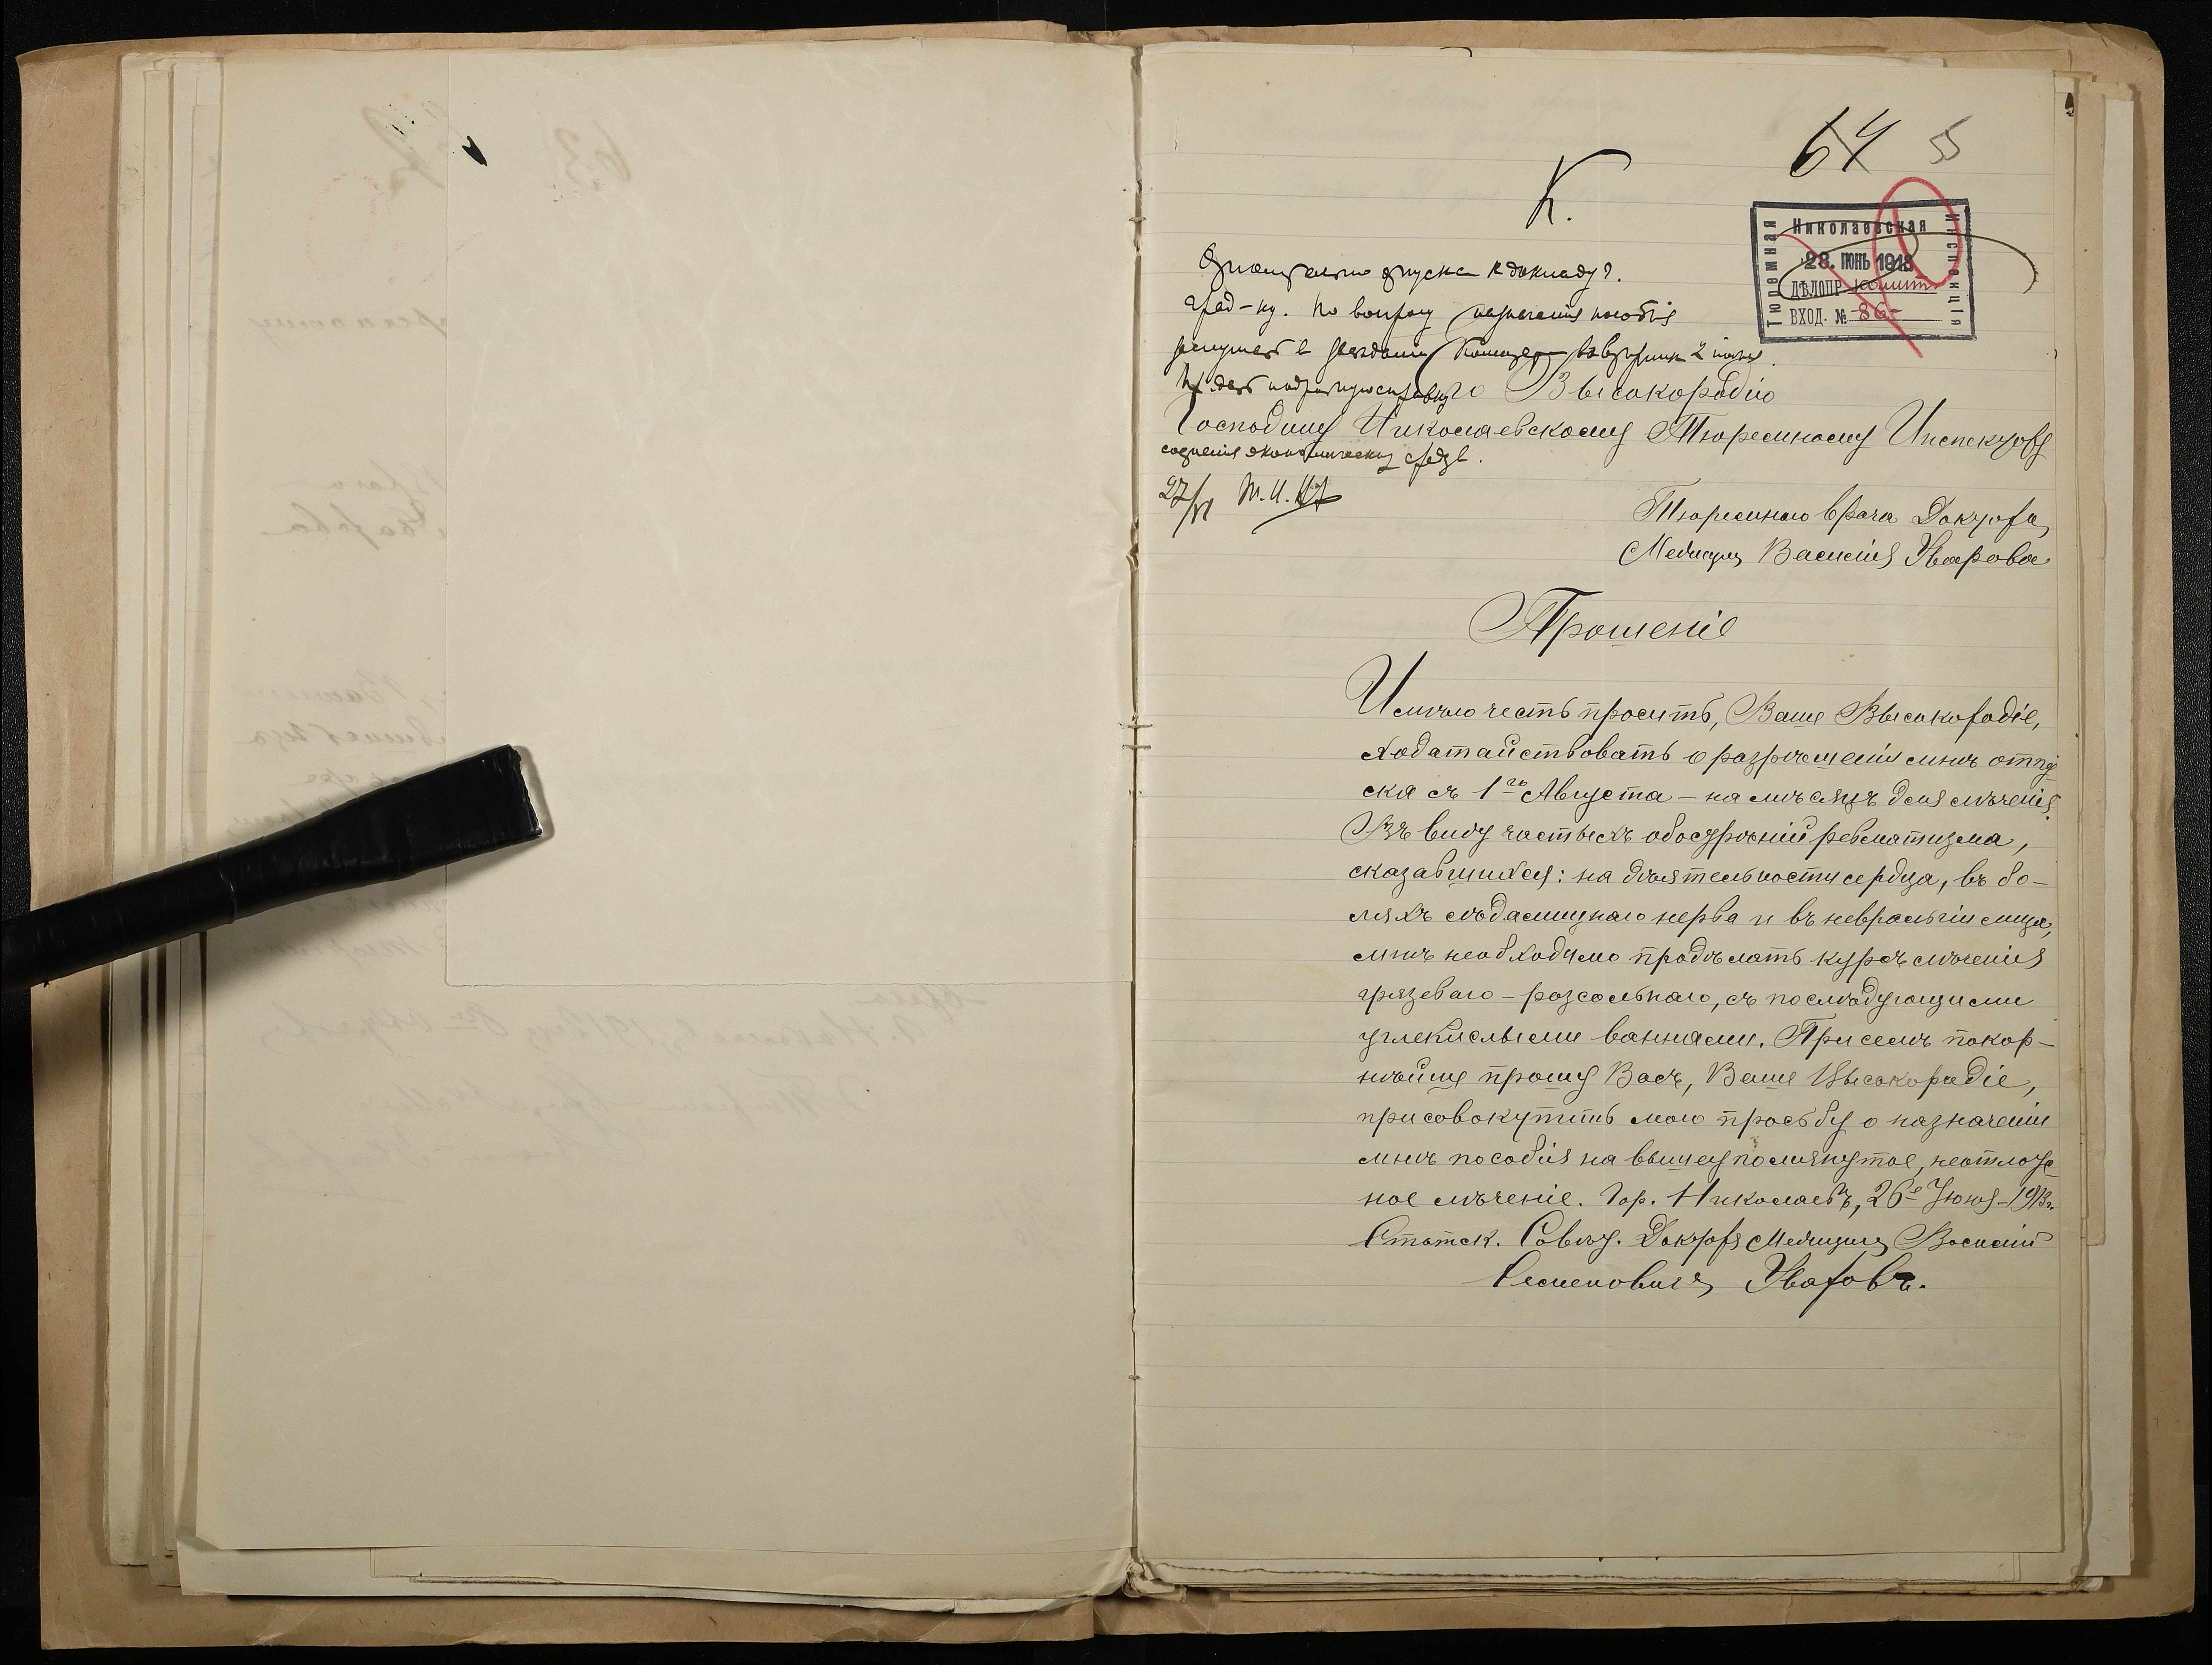 64 55
К.
Николаевская
Тюремная
Инспекція
28. ІЮНЬ 1913
ДѢЛОПР.
ВХОД. № 86
отпуска к докладу
По вопросу назначенія пособія
2 іюля
го Высокородію
Господину Николаевскому Тюремному Инспектору
экономических средств.
27/VI
Тюремнаго врача Доктора
Медицины Василія Уварова
Прошеніе
Имѣю честь просить, Ваше Высокородіе,
ходатайствовать о разрѣшеніи мнѣ отпу-
ска съ 1го Августа – на мѣсяцъ для лѣченія.
Въ виду частыхъ обостреній ревматизма,
сказавшихся: на дѣятельности сердца, въ бо-
ляхъ сѣдалищнаго нерва и въ невралгіи лица,
мнѣ необходимо продѣлать курсъ лѣченія
грязеваго – разсольнаго, съ послѣдующими
углекислыми ваннами. При семъ покор-
нѣйше прошу Васъ, Ваше Высокородіе,
присовокупить мою просьбу о назначеніи
мнѣ пособія на вышеупомянутое, неотлож-
ное лѣченіе. Гор. Николаевъ, 26е Іюня – 1913 г.
Статск. Совѣт. Докторъ Медицины Василій
Семеновичъ Уваровъ.